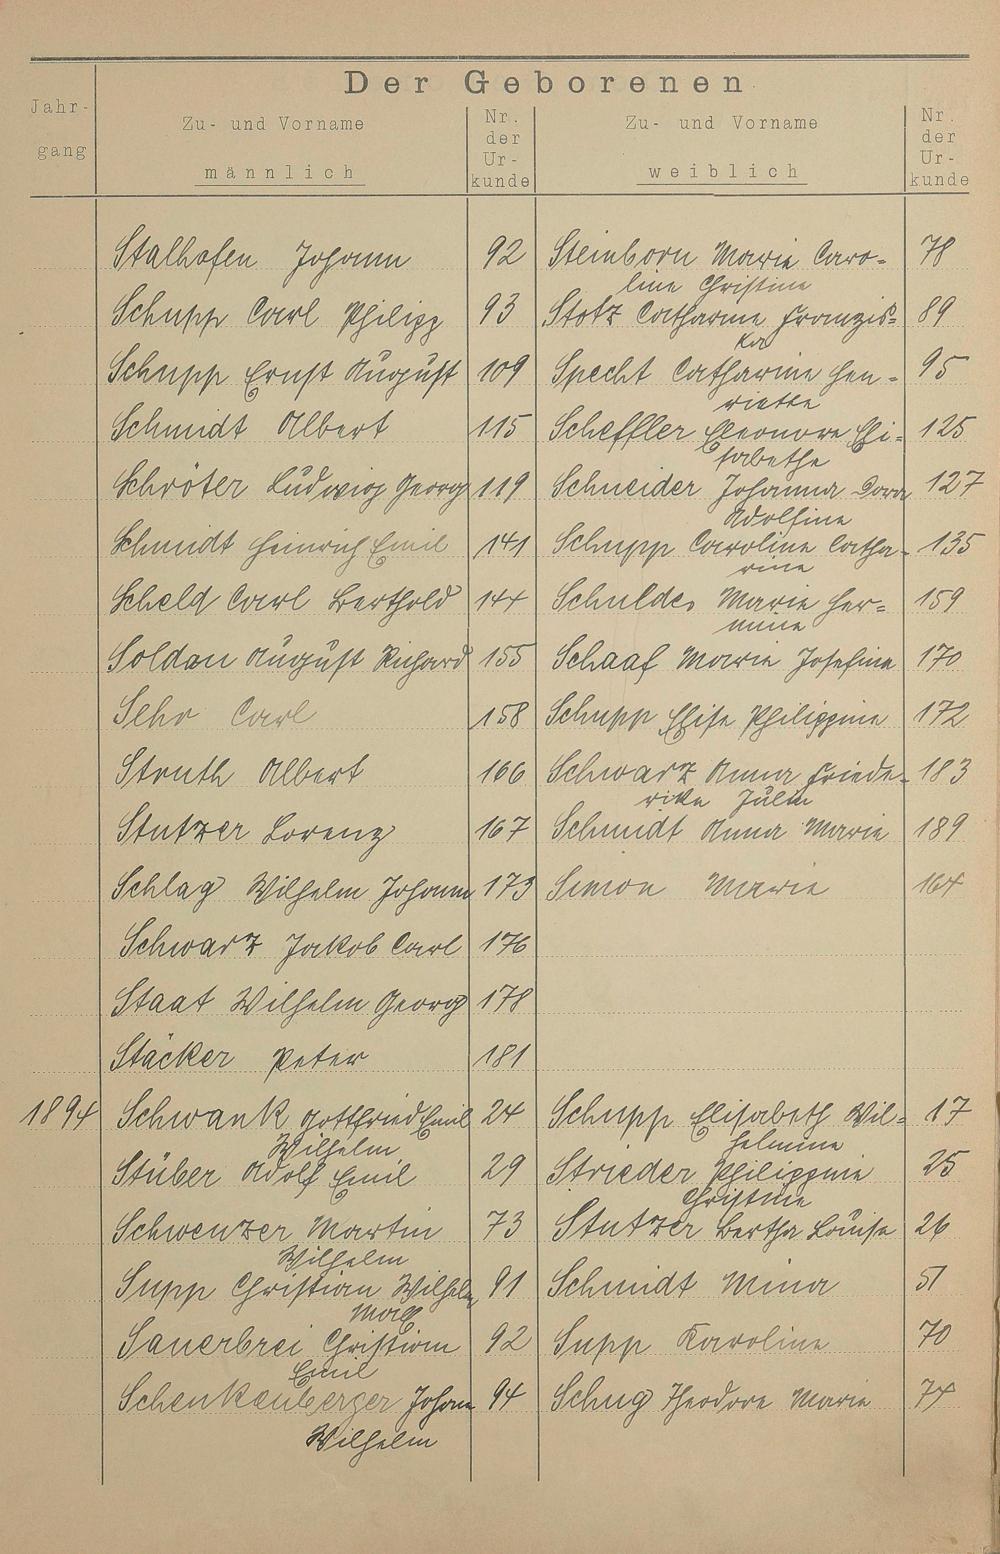 Der Geborenen
Jahr-
gang
Zu- und Vorname
männlich
Nr.
der
Ur-
kunde
Zu- und Vorname
weiblich
Nr.
der
Ur-
kunde
Stalhofen Johann 92 Steinborn Marie Caro=
line Christine 78
Schupp Carl Philipp 93 Stotz Catharine Franzis=
ka 89
Schupp Ernst August 109 Specht Catharine Hen=
riette 95
Schmidt Albert 115 Scheffler Eleonore Eli=
sabethe 125
Schröter Ludwig Georg 119 Schneider Johanna Dora
Adolfine 127
Schmidt Heinrich Emil 141 Schupp Caroline Catha=
rine 135
Scheld Carl Berthold 144 Schuldes Marie Her=
mine 159
Soldan August Richard 155 Schaaf Marie Josefine 170
Sehr Carl 158 Schupp Elise Philippine 172
Struth Albert 166 Schwarz Anna Friede=
rike Julie 183
Stutzer Lorenz 167 Schmidt Anna Marie 189
Schlag Wilhelm Johann 173 Simon Marie 164
Schwarz Jakob Carl 176
Staat Wilhelm Georg 178
Stäcker Peter 181
1894 Schwank Gottfried Emil
Wilhelm 24 Schupp Elisabeth Wil=
helmine 17
Stüber Adolf Emil 29 Strieder Philippine
Christine 25
Schwenzer Martin
Wilhelm 73 Stutzer Bertha Louise 26
Supp Christian Wilhelm
Max 91 Schmidt Mina 51
Sauerbrei Christian
Emil 92 Supp Karoline 70
Schenkenberger Johann
Wilhelm 94 Schug Theodore Marie 74